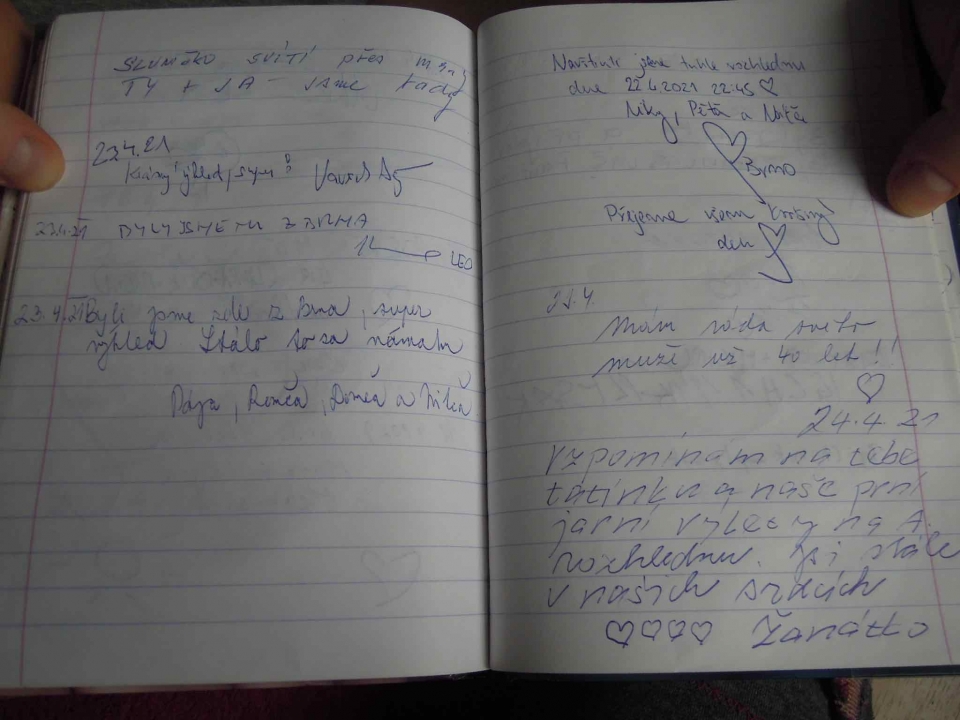 SLUNÍČKO SVÍTÍ PŘES MRAKY
TY + JA - JSME TADY
23.4.21
Krásný výhled, sym!
23.4.21 BYLY JSME TU ZDRMA
LEO
23.4.21 Byli jsme zde z Brna, super
výhled Stálo to za námahu
Pája, Romča, Domča a Mika
Navštívili jsme tuhle rozhlednu
dne 22.4.2021 22:45 ♡
Niky, Péťa a
Brno
Přejeme vsem krásný
den
23.4.
Mám ráda svého
muže už 40 let!!
♡
24.4.21
Vzpomínám na tebe
tatínku a naše prní
jarní výlety na A.
rozhlednu. Jsi stále
v našich srdcích
♡♡♡♡ Žanátko